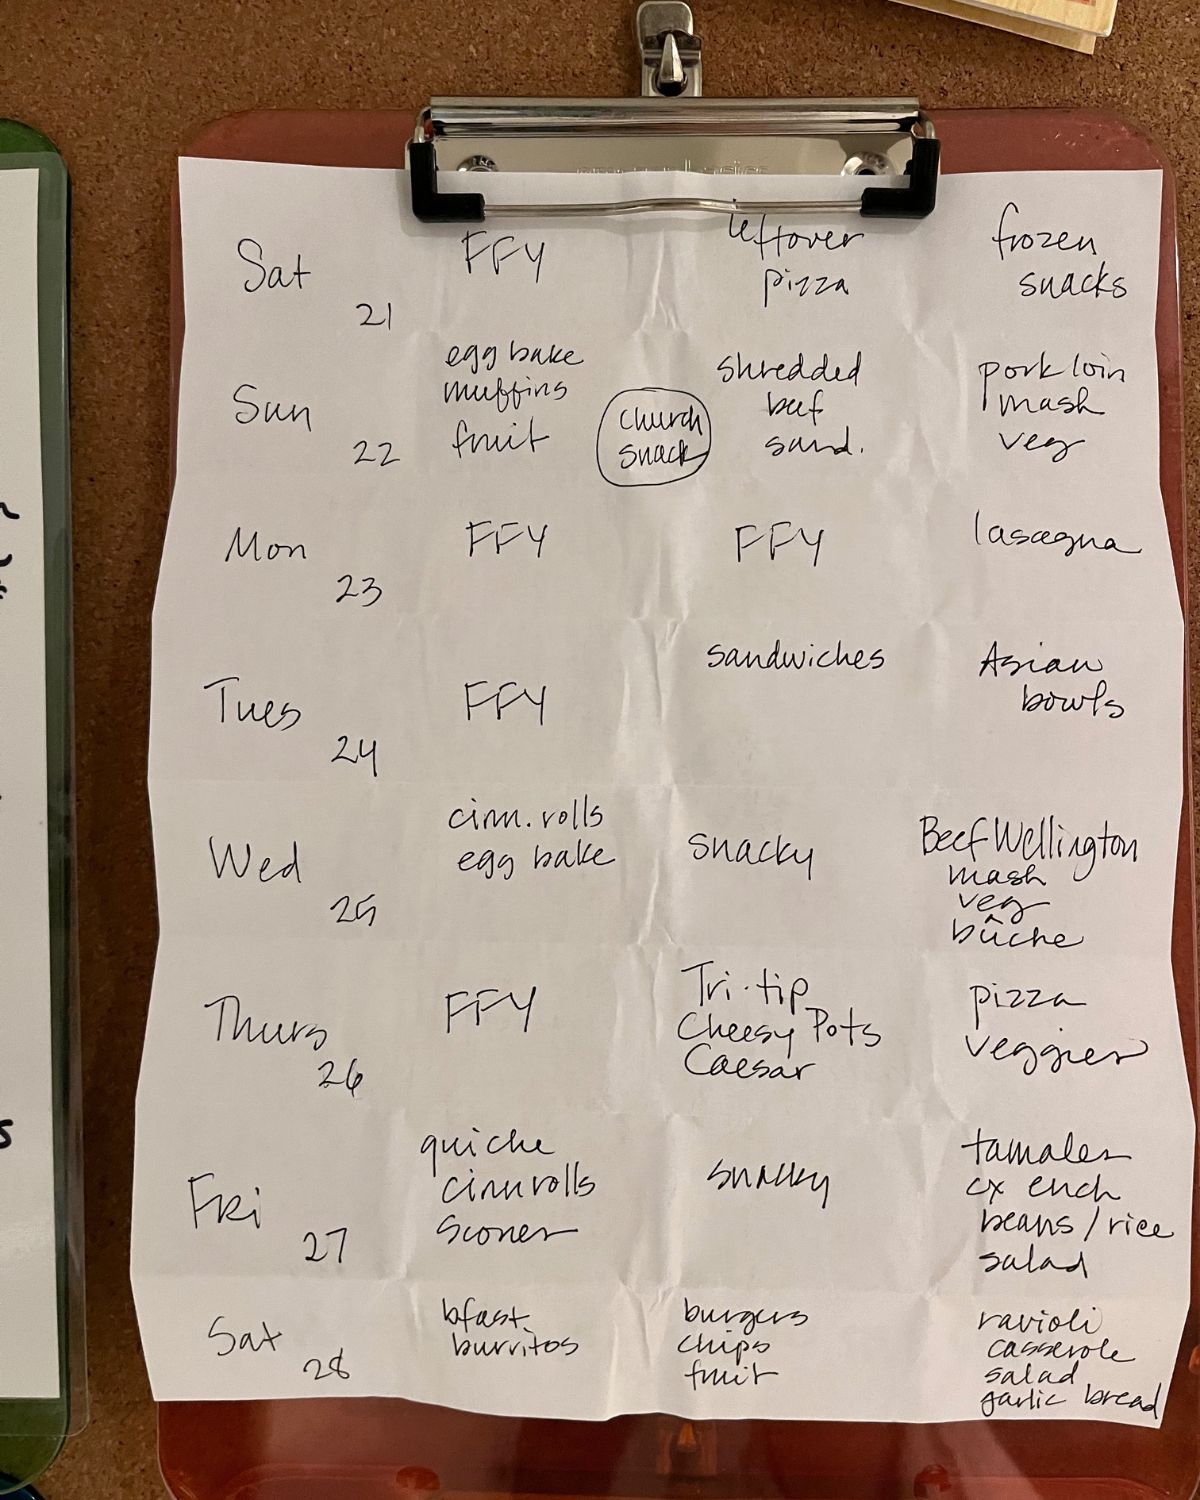 Sat 21
FFY
leftover
pizza
frozen
snacks
Sun 22
egg bake
muffins
fruit
church
snack
shredded
beef
sand.
pork loin
mash
veg
Mon 23
FFY
FFY
lasagna
Tues 24
FFY
sandwiches
Asian
bowls
Wed 25
cinn. rolls
egg bake
snacky
Beef Wellington
mash
veg
bûche
Thurs 26
FFY
Tri-tip
Cheesy Pots
Caesar
pizza
veggies
Fri 27
quiche
cinn rolls
scones
snacky
tamales
cx ench
beans/rice
salad
Sat 28
bfast
burritos
burgers
chips
fruit
ravioli
casserole
salad
garlic bread